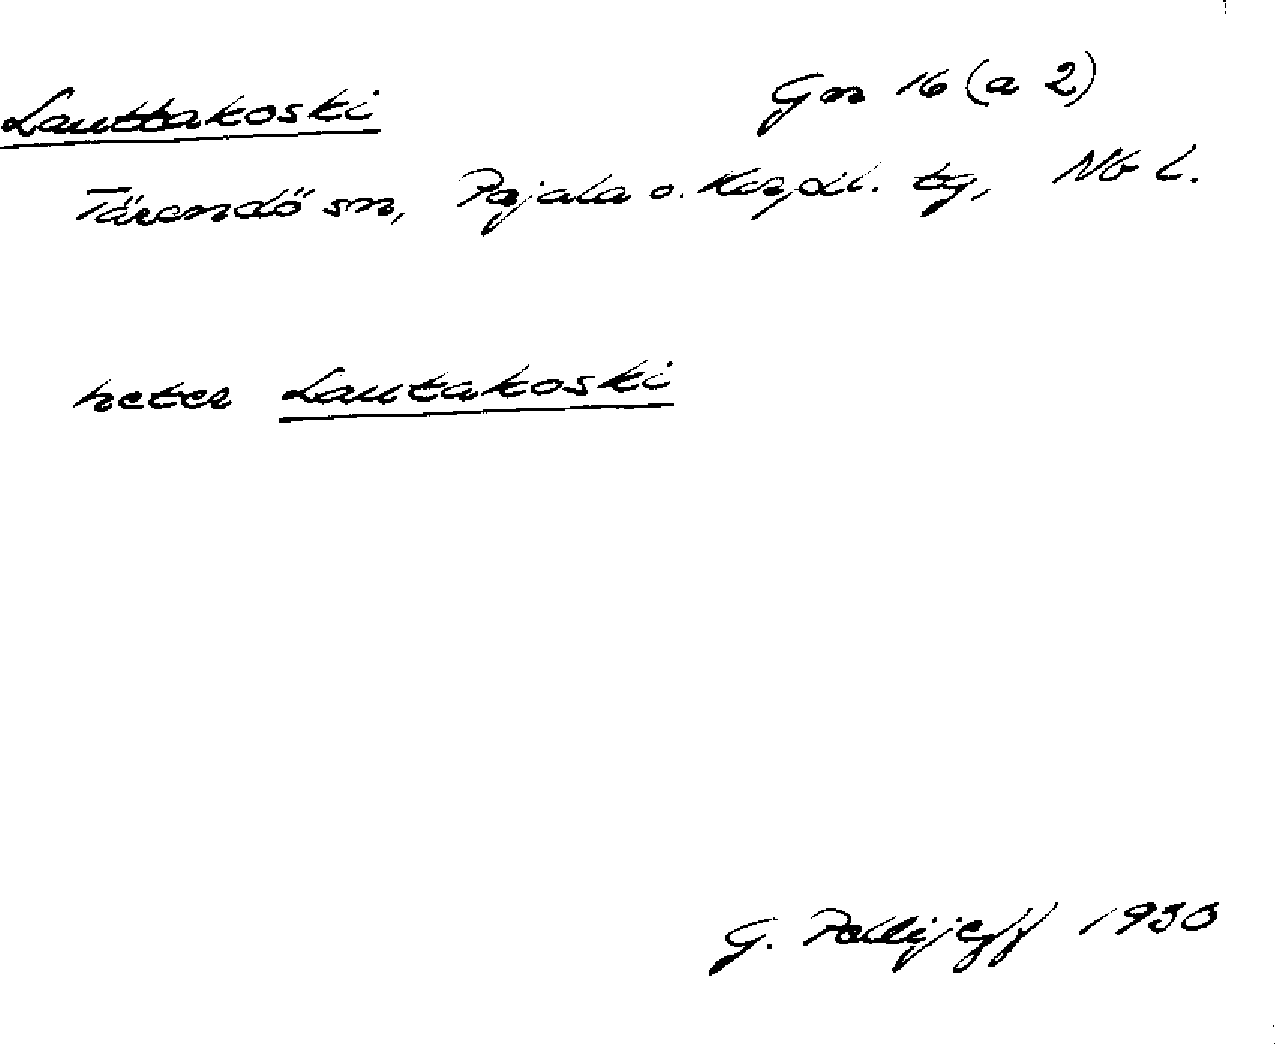 Lauttakoski Gn 16 (a 2)
Tärendö sn, Pajala o. Korpil. tg, Nb l.
heter Lautakoski
G. Pellijeff 1930